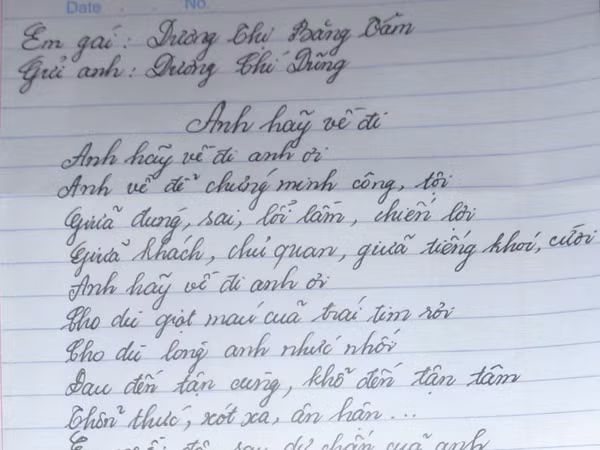 Date . . No.
Em gái : Dương Thị Băng Tâm
Gửi anh : Dương Chí Dũng
Anh hãy về đi
Anh hãy về đi anh ơi
Anh về để chứng minh công, tội
Giữa đúng, sai, lỗi lầm, chiến lợi
Giữa khách, chủ quan, giữa tiếng khóc, cười
Anh hãy về đi anh ơi
Cho dù giọt máu của trái tim rơi
Cho dù lòng anh nhức nhối
Đau đến tận cùng, khổ đến tận tâm
Thổn thức, xót xa, ân hận ...
của anh